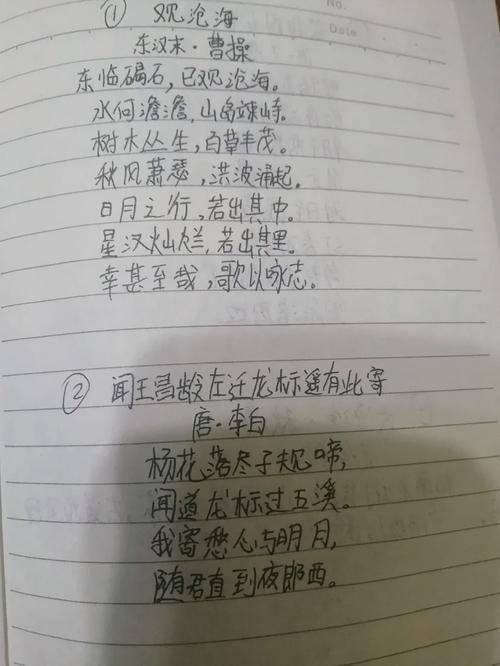 No.
Date
① 观沧海
东汉末·曹操
东临碣石,已观沧海。
水何澹澹,山岛竦峙。
树木丛生,百草丰茂。
秋风萧瑟,洪波涌起。
日月之行,若出其中。
星汉灿烂,若出其里。
幸甚至哉,歌以咏志。
② 闻王昌龄左迁龙标遥有此寄
唐·李白
杨花落尽子规啼,
闻道龙标过五溪。
我寄愁心与明月,
随君直到夜郎西。